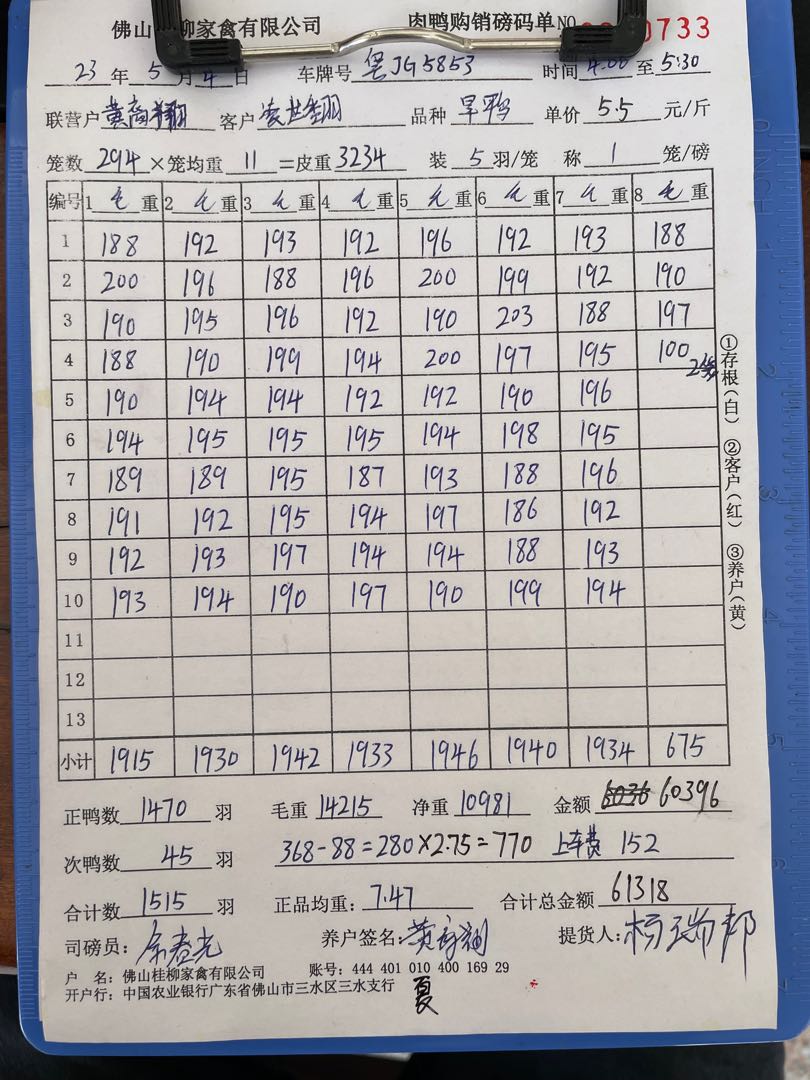 佛山桂柳家禽有限公司 肉鸭购销磅码单NO 0733
23年5月4日 车牌号 粤JG5853 时间 4:00 至 5:30
联营户 客户 品种 旱鸭 单价 5.5 元/斤
笼数 294 ×笼均重 11 =皮重 3234 装 5 羽/笼 称 1 笼/磅
编号 1 毛重 2 〃重 3 〃重 4 〃重 5 〃重 6 〃重 7 〃重 8 毛重
1 188 192 193 192 196 192 193 188
2 200 196 188 196 200 199 192 190
3 190 195 196 192 190 203 188 197
4 188 190 199 194 200 197 195 100 2笼
5 190 194 194 192 192 190 196
6 194 195 195 195 194 198 195
7 189 189 195 187 193 188 196
8 191 192 195 194 197 186 192
9 192 193 197 194 194 188 193
10 193 194 190 197 190 199 194
11
12
13
小计 1915 1930 1942 1933 1946 1940 1934 675
①存根(白) ②客户(红) ③养户(黄)
正鸭数 1470 羽 毛重 14215 净重 10981 金额 60396
次鸭数 45 羽 368-88=280×2.75=770 上车费 152
合计数 1515 羽 正品均重: 7.47 合计总金额 61318
司磅员: 养户签名: 提货人: 杨瑞邦
户 名: 佛山桂柳家禽有限公司 账号: 444 401 010 400 169 29
开户行: 中国农业银行广东省佛山市三水区三水支行 夏